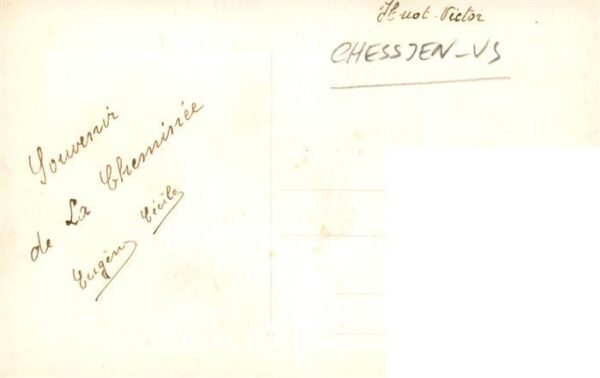 Huot-Victor
CHESSJEN-VS
Souvenir
de La Cheminée
Eugène Cécile